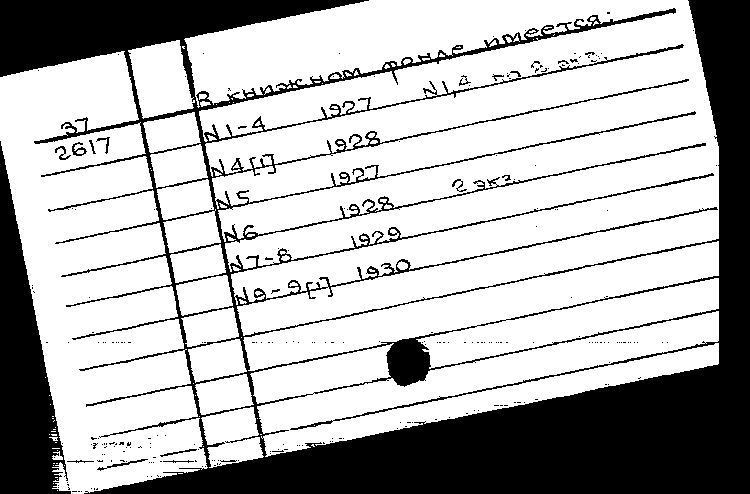 В книжном фонде имеется:
37
2617
N1-4 1927 N1,4 по 2 экз.
N4[1] 1928
N5 1927
N6 1928 2 экз.
N7-8 1929
N9-9[1] 1930